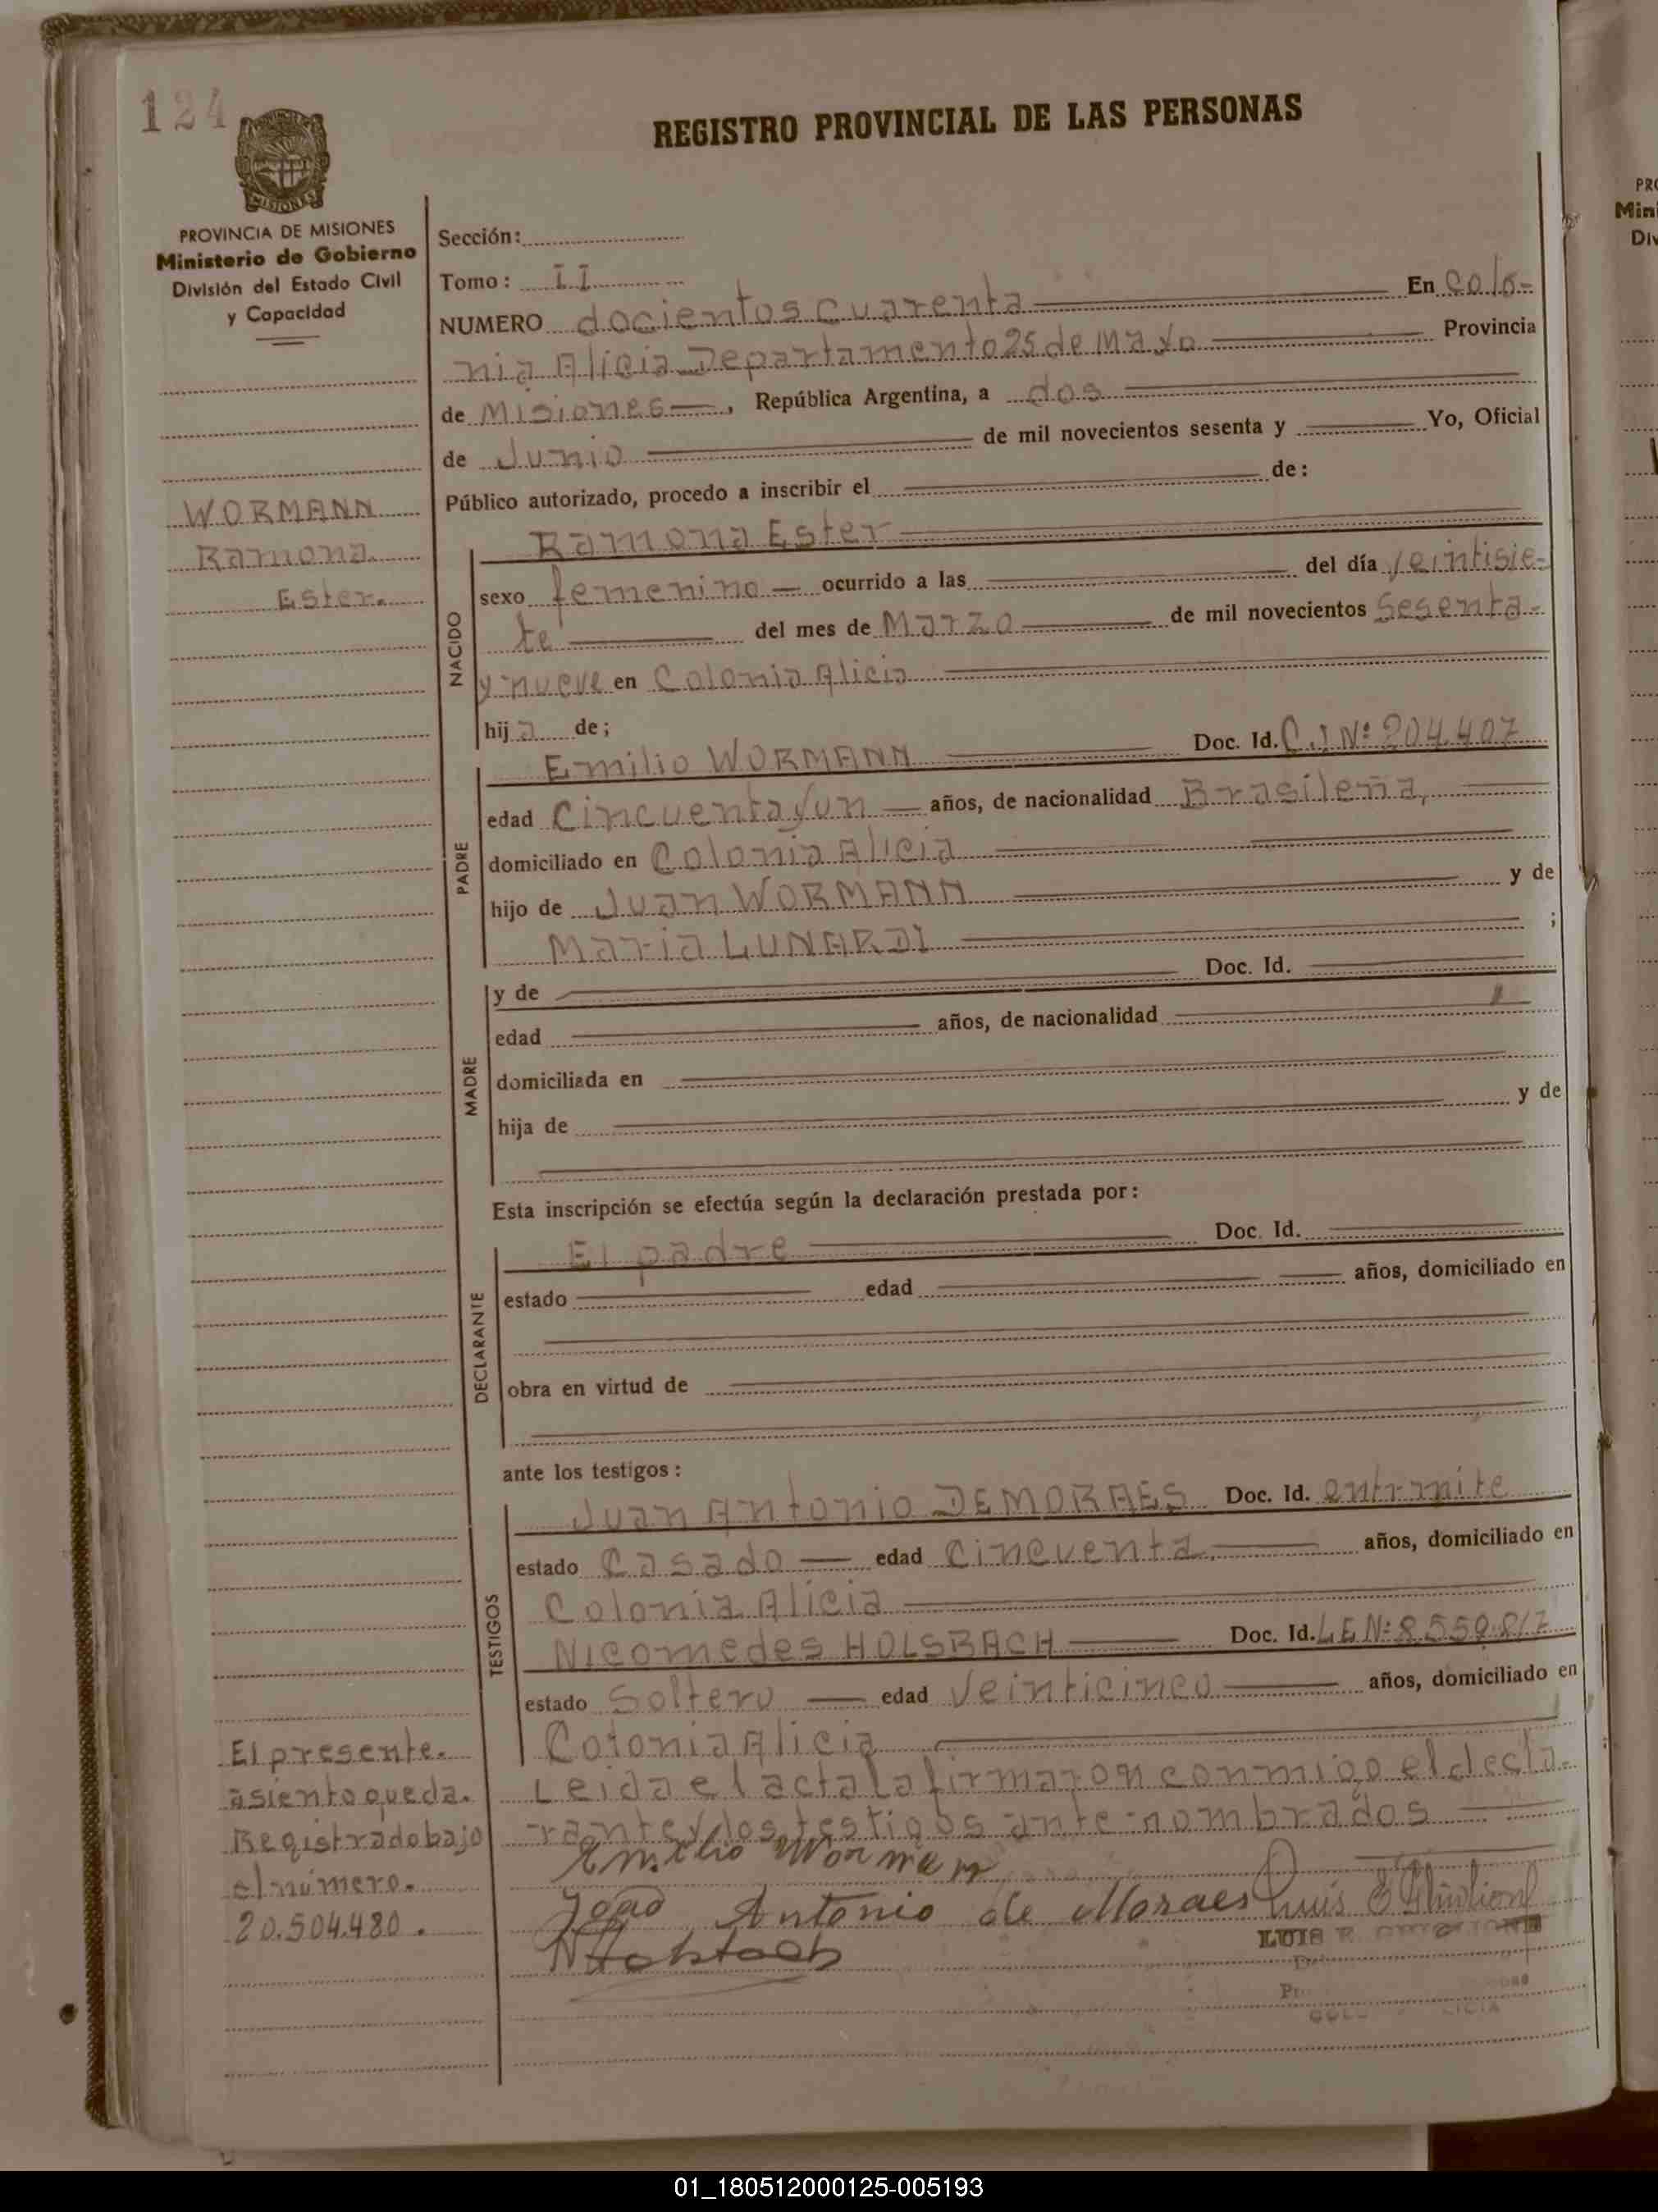 124
REGISTRO PROVINCIAL DE LAS PERSONAS
MISIONES
PROVINCIA DE MISIONES
Ministerio de Gobierno
División del Estado Civil
y Capacidad
WORMANN
Ramona
Ester.
Sección:
Tomo: II
NUMERO docientos cuarenta En Colo-
nia Alicia Departamento 25 de Mayo Provincia
de Misiones, República Argentina, a dos
de Junio de mil novecientos sesenta y Yo, Oficial
Público autorizado, procedo a inscribir el de:
Ramona Ester
NACIDO
sexo femenino ocurrido a las del día veintisie-
te del mes de Marzo de mil novecientos Sesenta-
y nueve en Colonia Alicia
hija de;
PADRE
Emilio WORMANN Doc. Id. C.I Nº 204.407
edad Cincuenta y un años, de nacionalidad Brasileña,
domiciliado en Colonia Alicia
hijo de Juan WORMANN y de
Maria LUNARDI ;
MADRE
y de Doc. Id.
edad años, de nacionalidad
domiciliada en
hija de y de
Esta inscripción se efectúa según la declaración prestada por:
DECLARANTE
El padre Doc. Id.
estado edad años, domiciliado en
obra en virtud de
ante los testigos:
TESTIGOS
Juan Antonio DEMORAES Doc. Id. entrmite
estado Casado edad Cincuenta años, domiciliado en
Colonia Alicia
Nicomedes HOLSBACH Doc. Id. L.E.Nº 8.559.817
estado Soltero edad Veinticinco años, domiciliado en
Colonia Alicia
Leida el acta la firmaron conmigo el decla-
rante y los testigos ante nombrados
El presente.
asiento queda.
Registrado bajo
el número.
20.504.480.
Emilio Worman
João Antonio de Moraes Luis
LUIS R.
PRO
Min
Div
01_180512000125-005193